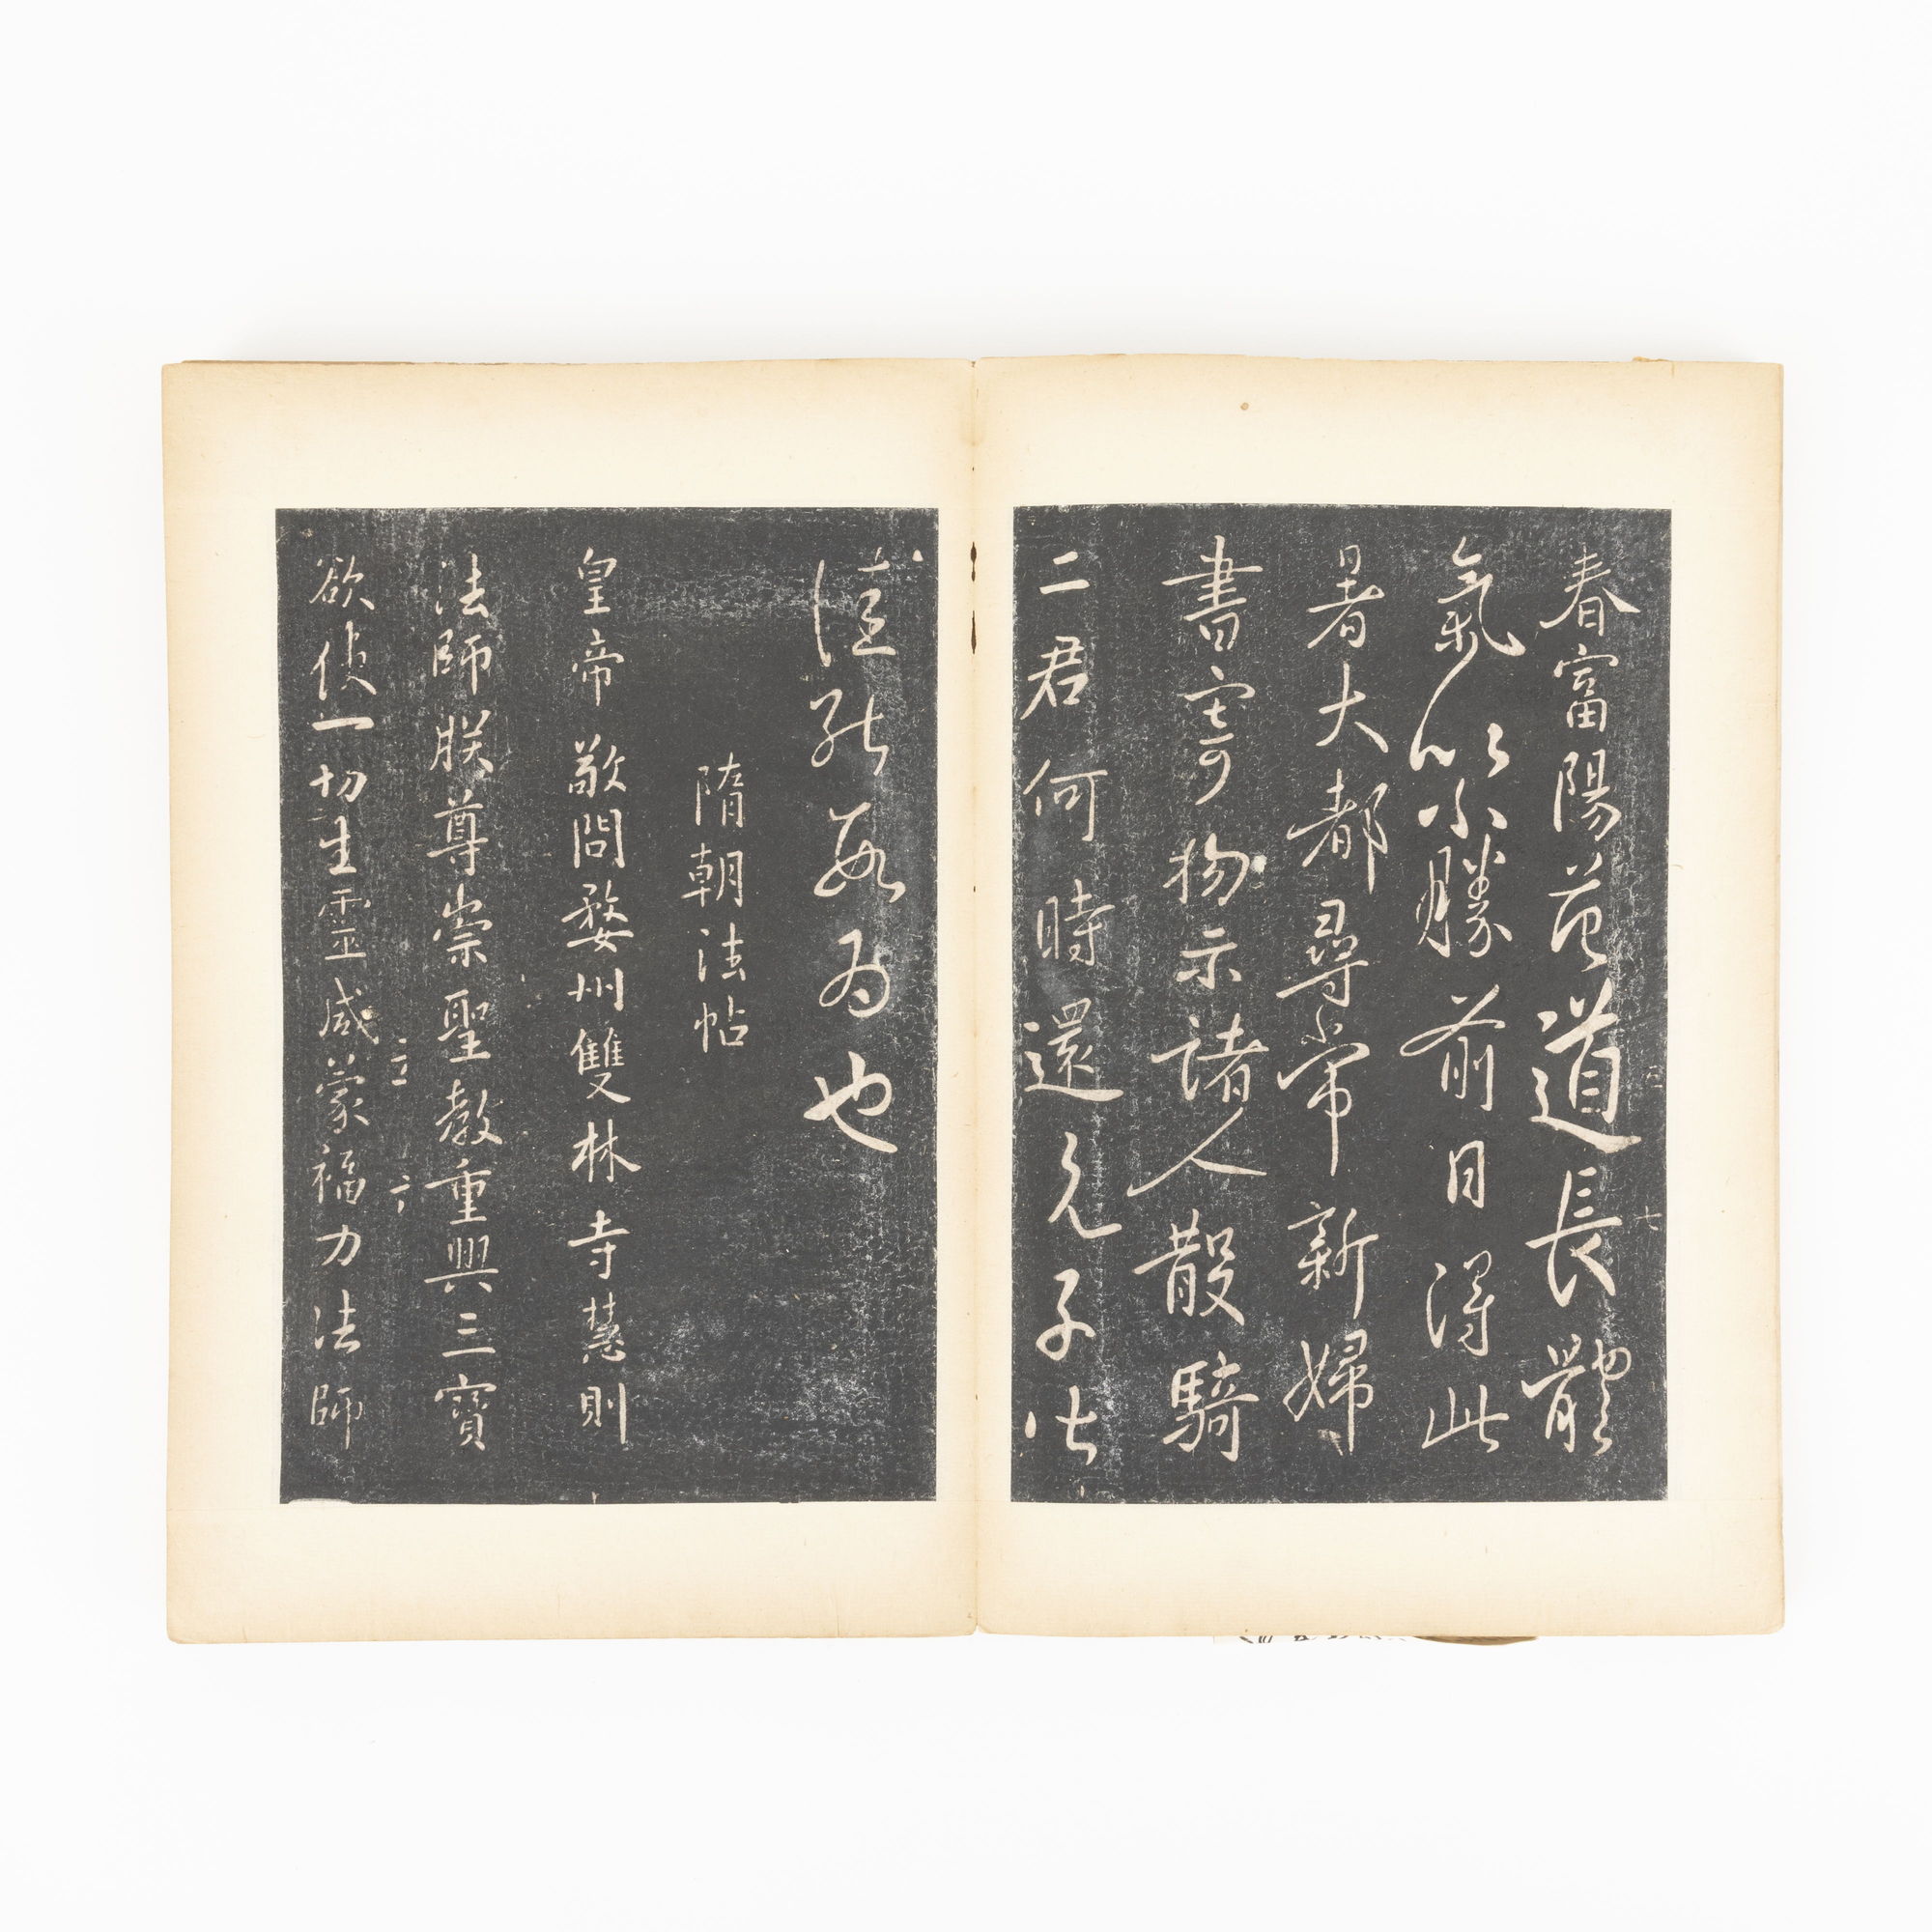 春富陽花道長體
氣以不勝前日得此
暑大都尋常新婦
書寄物示諸人散騎
二君何時還允子比
也
隋朝法帖
皇帝敬問婺州雙林寺慧則
法師朕尊崇聖教重興三寶
欲使一切生靈咸蒙福力法師